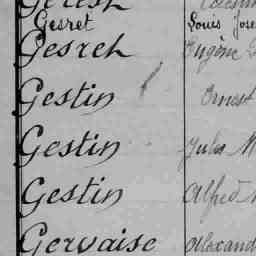 Gesret Louis Jose
Gesreh Eugène
Gestin Ernest
Gestin Jules M
Gestin Alfred
Gervaise Alexand